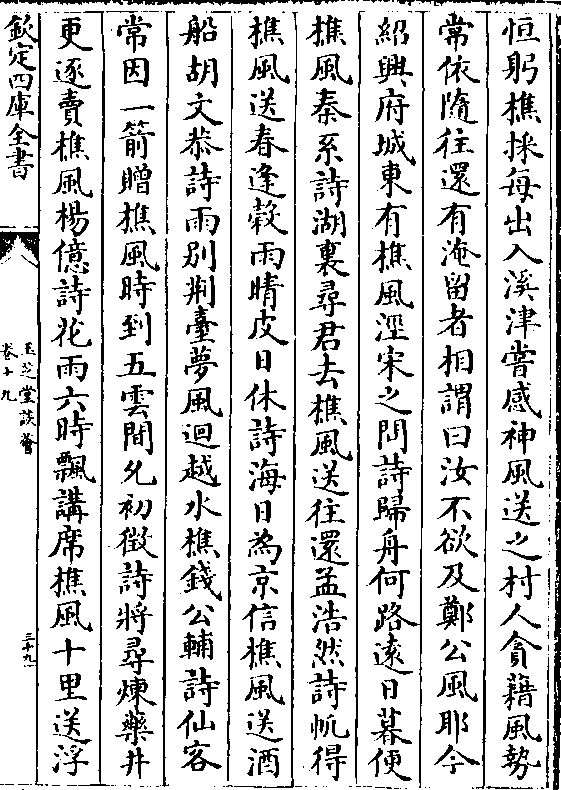 恒躬樵採每出入溪津嘗感神風送之村人貪藉風勢
常依隨往還有淹留者相謂曰汝不欲及鄭公風耶今
紹興府城東有樵風涇宋之問詩歸舟何路遠日暮便
樵風秦系詩湖裏尋君去樵風送往還孟浩然詩帆得
樵風送春逢榖雨晴皮日休詩海日為京信樵風送酒
船胡文恭詩雨别荆臺夢風迴越水樵錢公輔詩仙客
常因一箭贈樵風時到五雲間允初徵詩將尋煉藥井
更逐賣樵風楊億詩花雨六時飄講席樵風十里送浮
欽定四庫全書
玉芝堂談薈
卷十九
三十九